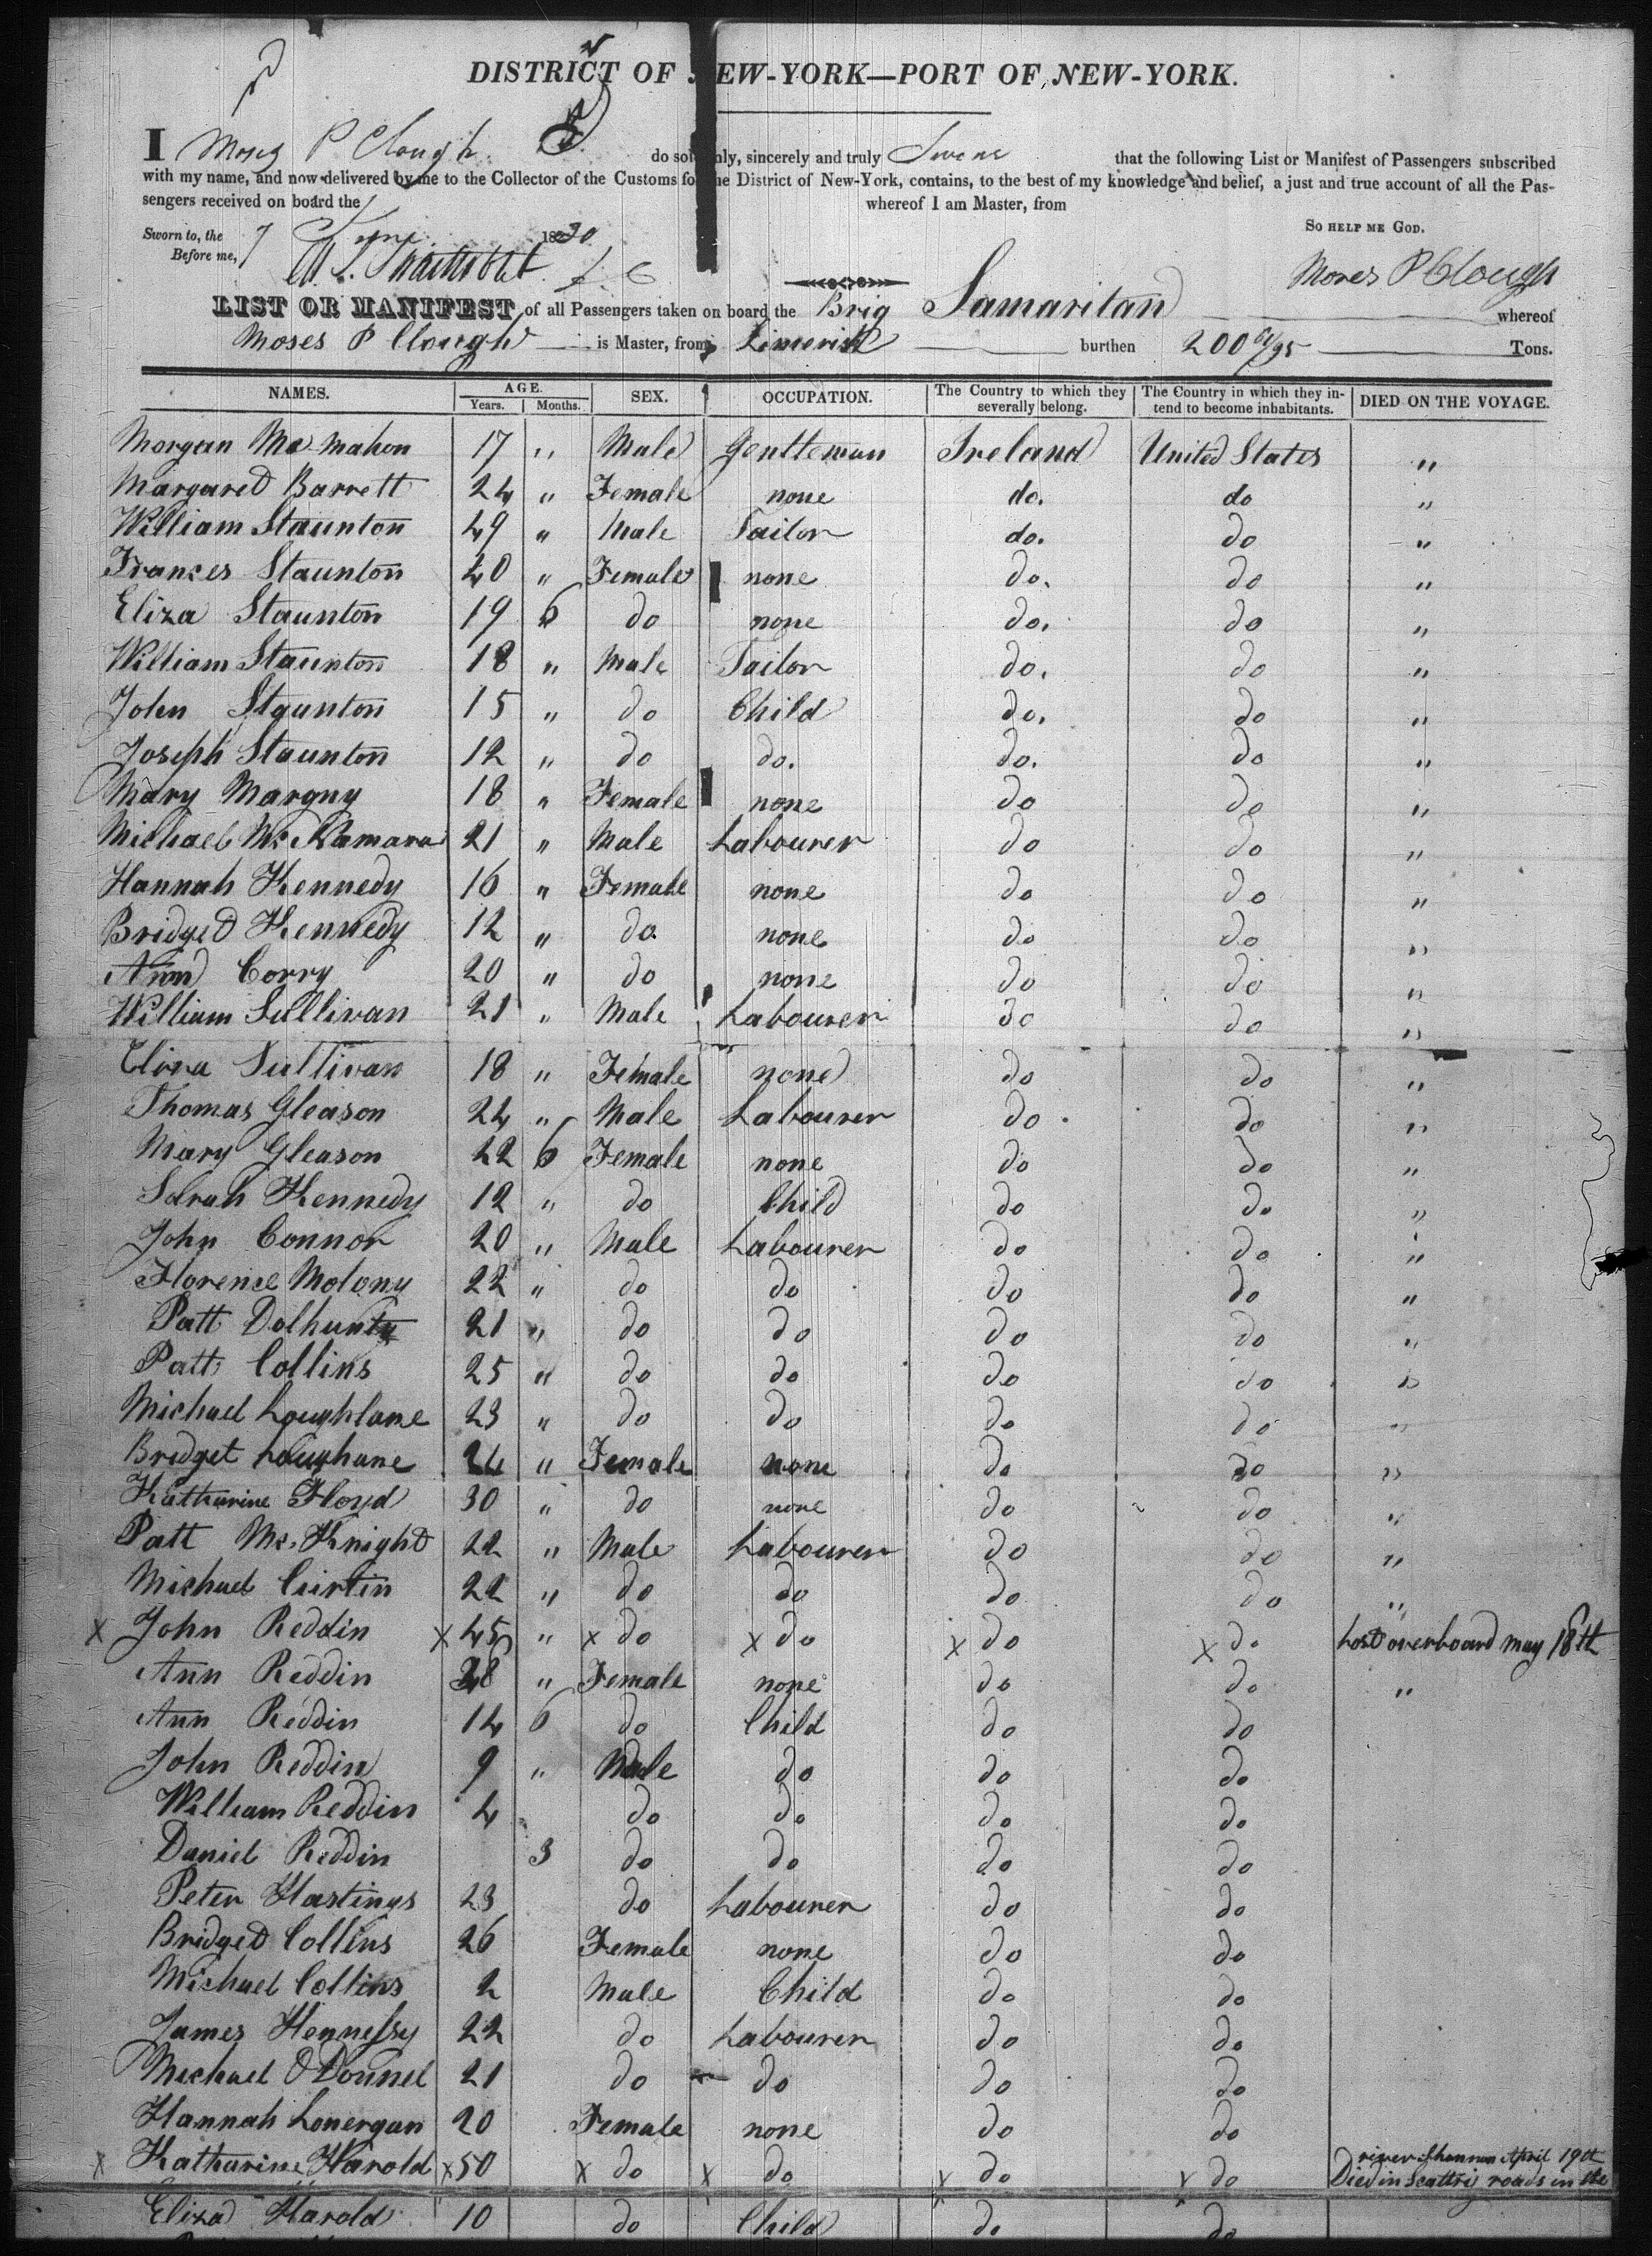 DISTRICT OF NEW-YORK—PORT OF NEW-YORK.
I Moses P Clough do solemnly, sincerely and truly Swear that the following List or Manifest of Passengers subscribed
with my name, and now delivered by me to the Collector of the Customs for the District of New-York, contains, to the best of my knowledge and belief, a just and true account of all the Pas-
sengers received on board the whereof I am Master, from
Sworn to, the 7 June 1830 SO HELP ME GOD.
Before me,
Moses P Clough
LIST OR MANIFEST of all Passengers taken on board the Brig Samaritan whereof
Moses P Clough is Master, from Limerick burthen 200 61/95 Tons.
NAMES. AGE. SEX. OCCUPATION. The Country to which they severally belong. The Country in which they in-tend to become inhabitants. DIED ON THE VOYAGE.
Years. Months.
Morgan Mc Mahon 17 " Male Gentleman Ireland United States "
Margaret Barrett 24 " Female none do. do "
William Staunton 49 " Male Tailor do. do "
Frances Staunton 40 " Female none do. do "
Eliza Staunton 19 6 do none do. do "
William Staunton 18 " Male Tailor do. do "
John Staunton 15 " do Child do. do "
Joseph Staunton 12 " do do. do. do "
Mary Margny 18 " Female none do do "
Michael Mc Namara 21 " Male Labourer do do "
Hannah Kennedy 16 " Female none do do "
Bridget Kennedy 12 " do none do do "
Ann Corry 20 " do none do do "
William Sullivan 21 " Male Labourer do do "
Eliza Sullivan 18 " Female none do do "
Thomas Gleason 24 " Male Labourer do do "
Mary Gleason 22 6 Female none do do "
Sarah Kennedy 12 " do Child do do "
John Connor 20 " Male Labourer do do "
Florence Molony 22 " do do do do "
Patt Dolhunty 21 " do do do do "
Patt Collins 25 " do do do do "
Michael Loughlane 23 " do do do do "
Bridget Loughane 24 " Female none do do "
Katharine Floyd 30 " do none do do "
Patt Mc Knight 22 " Male Labourer do do "
Michael Curtin 22 " do do do do "
x John Reddin x 45 " x do x do x do x do Lost overboard may 18th
Ann Reddin 38 " Female none do do "
Ann Reddin 14 6 do Child do do
John Reddin 9 " Male do do do
William Reddin 4 do do do do
Daniel Reddin 3 do do do do
Peter Hastings 23 do Labourer do do
Bridget Collins 26 Female none do do
Michael Collins 2 Male Child do do
James Hennessy 22 do Labourer do do
Michael O Donnel 21 do do do do
Hannah Lonergan 20 Female none do do
river Shannon April 19th
x Katharine Harold x 50 x do x do x do x do Died in Scattrij roads in the
Eliza Harold 10 do Child do do